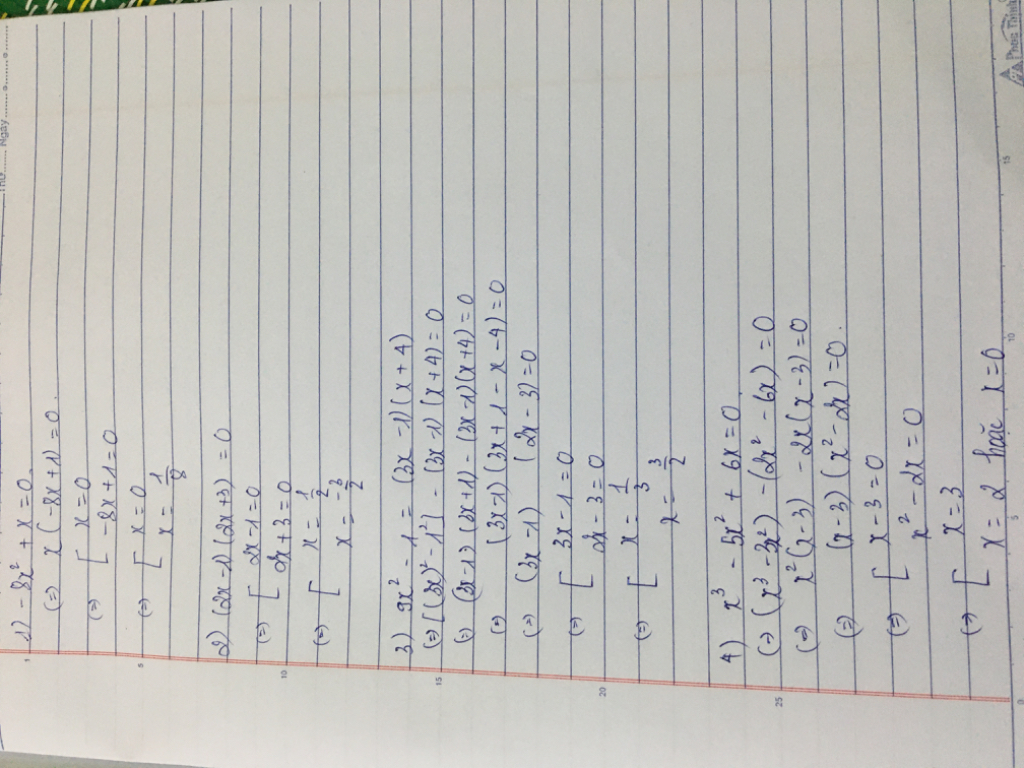 Thứ....... Ngày.......
1) - 8x² + x = 0.
(=) x(-8x+1) = 0.
(=) [ x = 0
-8x + 1 = 0
(=) [ x = 0
x = 1/8
2) (2x-1)(2x+3) = 0
(=) [ 2x-1 = 0
2x + 3 = 0
(=) [ x = 1/2
x = -3/2
3) 9x² - 1 = (3x-1)(x+4)
(=) [(3x)² - 1²] - (3x-1)(x+4) = 0
(=) (3x-1)(3x+1) - (3x-1)(x+4) = 0
(=) (3x-1)(3x+1-x-4) = 0
(=) (3x-1) (2x-3) = 0
(=) [ 3x-1 = 0
2x-3 = 0
(=) [ x = 1/3
x = 3/2
4) x³ - 5x² + 6x = 0
(=) (x³ - 3x²) - (2x² - 6x) = 0
(=) x²(x-3) - 2x(x-3) = 0
(=) (x-3)(x²-2x) = 0.
(=) [ x-3 = 0
x² - 2x = 0
(=) [ x = 3
x = 2 hoặc x = 0
5
10
15
20
25
0
5
10
15
Phúc Thịnh